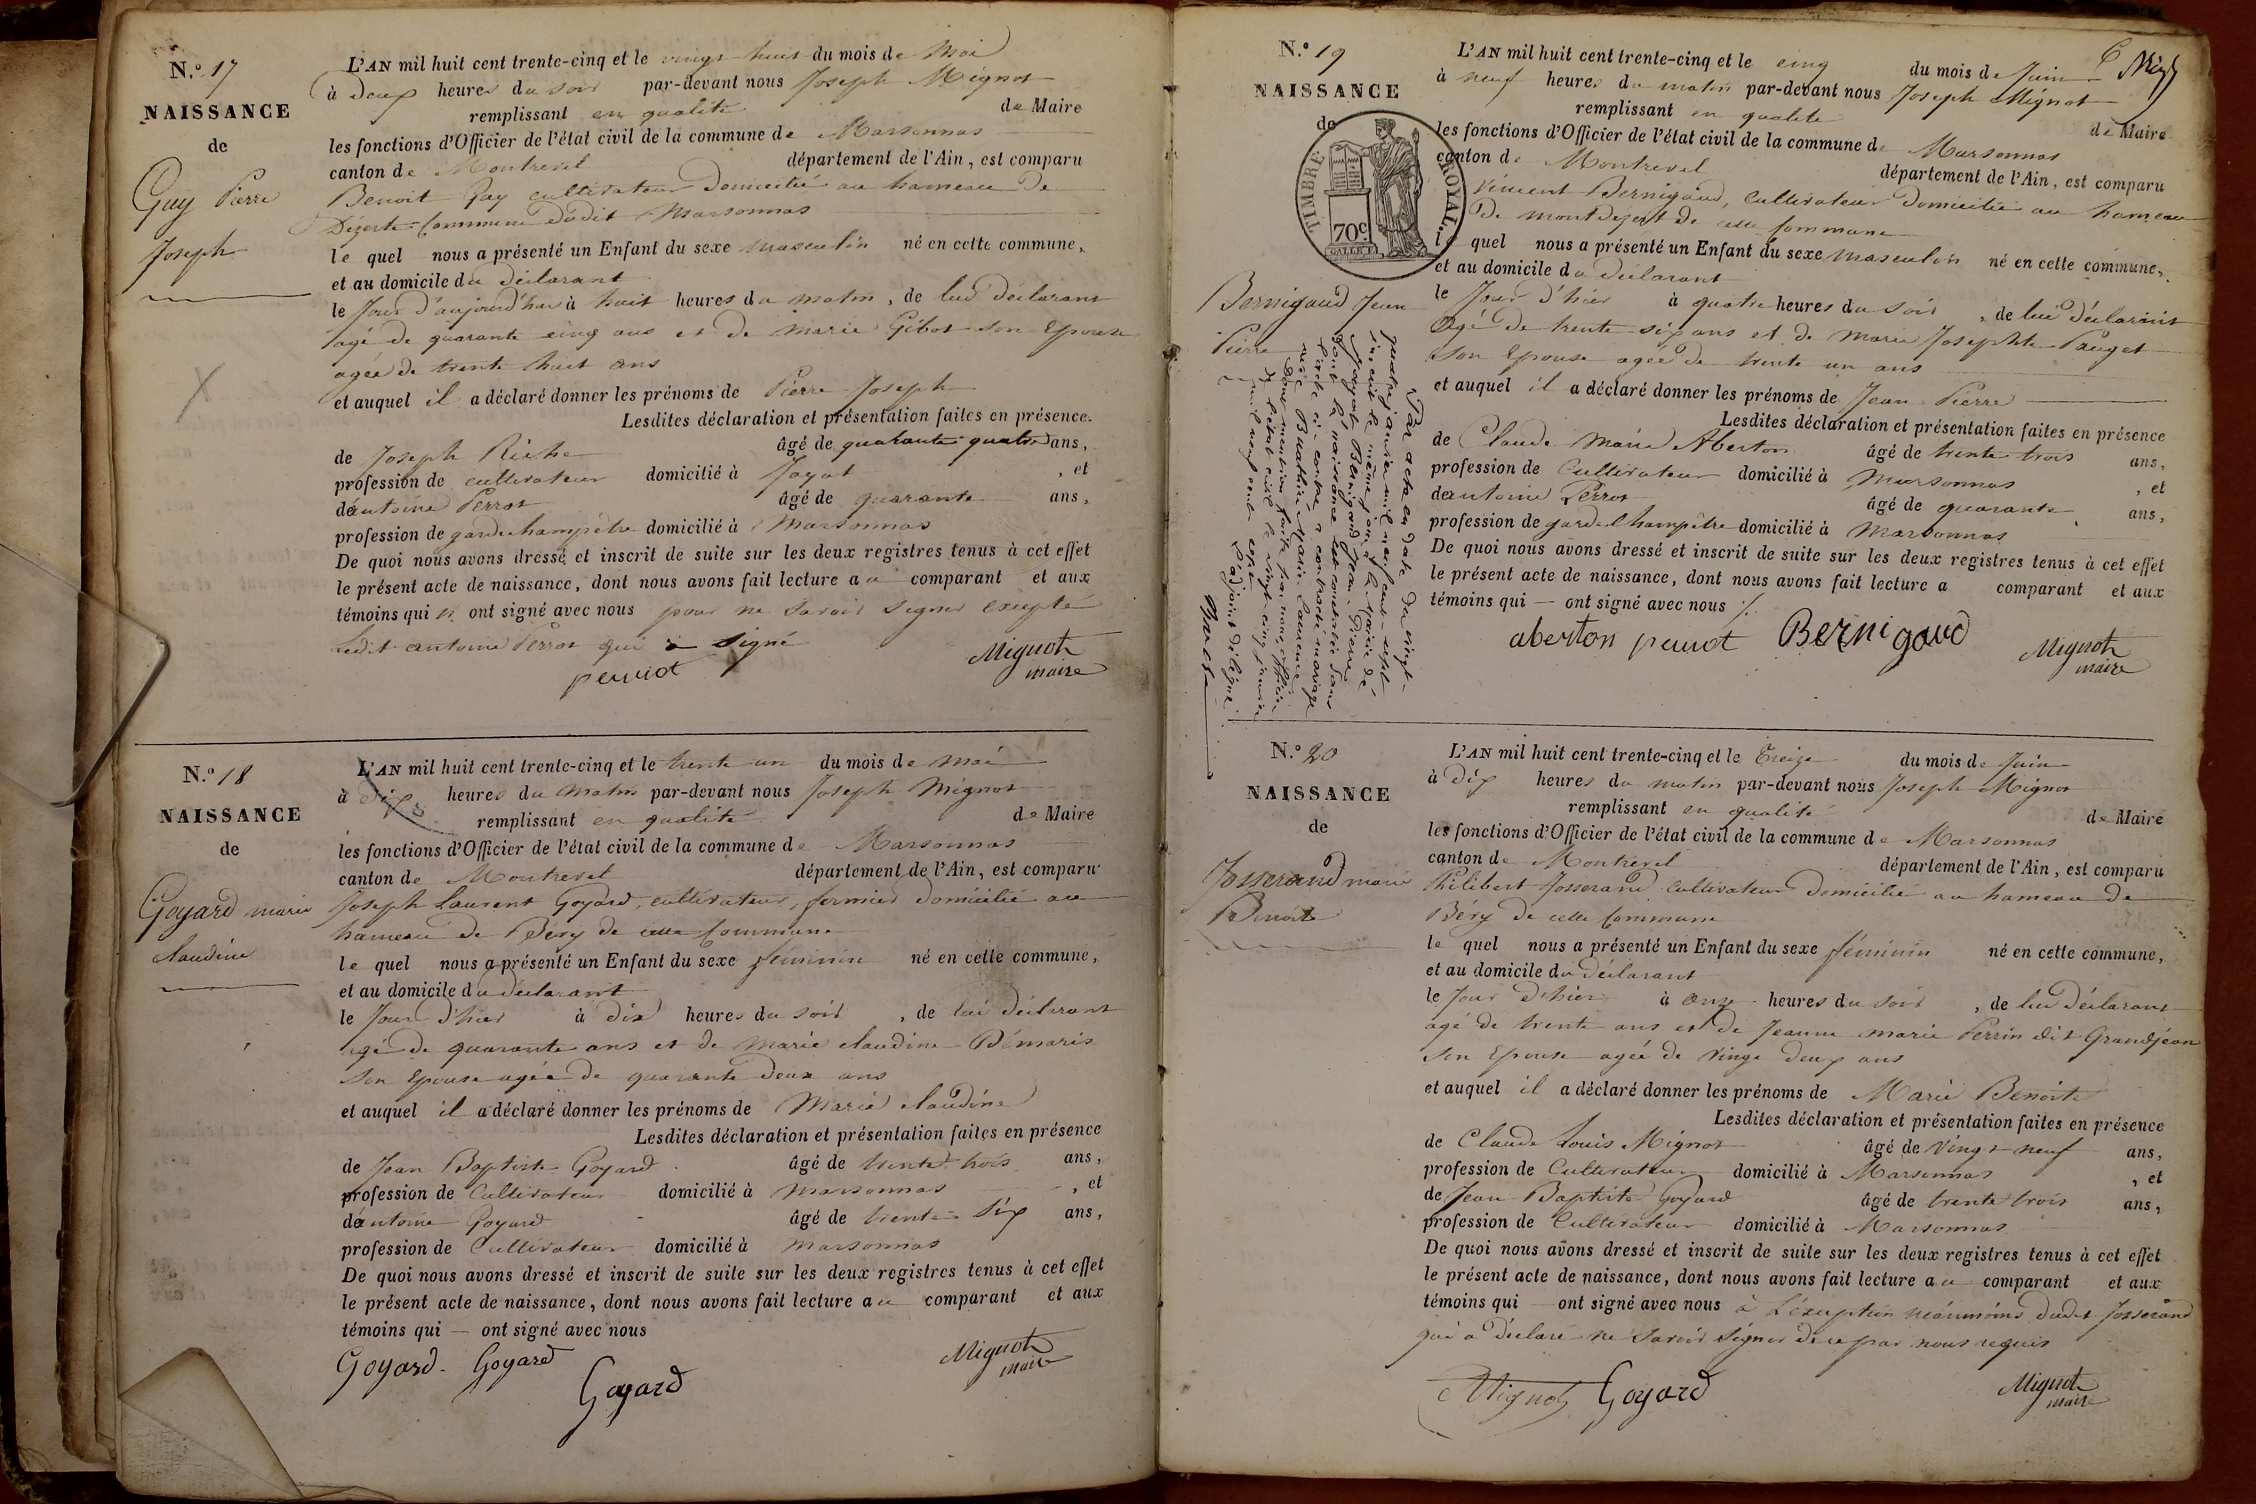 N.º 17
NAISSANCE
de
Gay Pierre
Joseph
L'AN mil huit cent trente-cinq et le vingt huit du mois de Mai
à deux heures du soir par-devant nous Joseph Mignot
remplissant en qualité de Maire
les fonctions d'Officier de l'état civil de la commune de Marsonnas
canton de Montrevel département de l'Ain, est comparu
Benoit Gay cultivateur domicilié au hameau de
Dézerte Commune dudit Marsonnas
le quel nous a présenté un Enfant du sexe masculin né en cette commune,
et au domicile du déclarant
le Jour d'aujourd'hui à huit heures du matin, de lui déclarant
agé de quarante cinq ans et de marie Gibot son Epouse
agée de trente huit ans
et auquel il a déclaré donner les prénoms de Pierre Joseph
Lesdites déclaration et présentation faites en présence
de Joseph Riche âgé de quarante quatre ans,
profession de cultivateur domicilié à Jayat, et
de antoine Perrot âgé de quarante ans,
profession de gardechampêtre domicilié à Marsonnas
De quoi nous avons dressé et inscrit de suite sur les deux registres tenus à cet effet
le présent acte de naissance, dont nous avons fait lecture au comparant et aux
témoins qui n' ont signé avec nous pour ne savoir signer excepté
ledit antoine Perrot qui a signé
perrot
Mignot
maire
N.º 18
NAISSANCE
de
Goyard marie
claudine
L'AN mil huit cent trente-cinq et le trente un du mois de mai
à dix heures du matin par-devant nous Joseph Mignot
remplissant en qualité de Maire
les fonctions d'Officier de l'état civil de la commune de Marsonnas
canton de Montrevel département de l'Ain, est comparu
Joseph Laurent Goyard, cultivateur, fermier domicilié au
hameau de Béry de cette Commune
le quel nous a présenté un Enfant du sexe féminin né en cette commune,
et au domicile du déclarant
le Jour d'hier à dix heures du soir, de lui déclarant
agé de quarante ans et de Marie claudine Bémaris
son Epouse agée de quarante deux ans
et auquel il a déclaré donner les prénoms de Marie claudine
Lesdites déclaration et présentation faites en présence
de Jean Baptiste Goyard âgé de trente trois ans,
profession de Cultivateur domicilié à marsonnas, et
de antoine Goyard âgé de trente Six ans,
profession de Cultivateur domicilié à marsonnas
De quoi nous avons dressé et inscrit de suite sur les deux registres tenus à cet effet
le présent acte de naissance, dont nous avons fait lecture au comparant et aux
témoins qui — ont signé avec nous
Goyard Goyard
Goyard
Mignot
maire
N.º 19
NAISSANCE
de
TIMBRE ROYAL
70c
Bernigaud Jean
Pierre
Par acte en date du vingt-
quatre janvier mil neuf cent-sept
inscrit le même jour à la Mairie de
Jayat Bernigaud Jean-Pierre
dont la naissance est constatée dans
l'acte ci-contre a contracté mariage
avec Buathier Marie Laurence
Dont mention faite par nous officier
de l'état civil le vingt-cinq janvier
mil neuf cent sept
L'adjoint délégué
L'AN mil huit cent trente-cinq et le cinq du mois de Juin
à neuf heures du matin par-devant nous Joseph Mignot
remplissant en qualité de Maire
les fonctions d'Officier de l'état civil de la commune de Marsonnas
canton de Montrevel département de l'Ain, est comparu
Vincent Bernigaud, cultivateur domicilié au hameau
de montdezert de cette Commune
le quel nous a présenté un Enfant du sexe masculin né en cette commune,
et au domicile du déclarant
le Jour d'hier à quatre heures du soir, de lui déclarant
agé de trente six ans et de marie Josephte Pauget
son Epouse agée de trente un ans
et auquel il a déclaré donner les prénoms de Jean Pierre
Lesdites déclaration et présentation faites en présence
de Claude Marie Aberton âgé de trente trois ans,
profession de Cultivateur domicilié à marsonnas, et
de antoine Perrot âgé de quarante ans,
profession de gardechampêtre domicilié à marsonnas
De quoi nous avons dressé et inscrit de suite sur les deux registres tenus à cet effet
le présent acte de naissance, dont nous avons fait lecture a comparant et aux
témoins qui — ont signé avec nous
aberton perrot Bernigaud
Mignot
maire
N.º 20
NAISSANCE
de
Josserand marie
Benoite
L'AN mil huit cent trente-cinq et le Treize du mois de Juin
à dix heures du matin par-devant nous Joseph Mignot
remplissant en qualité de Maire
les fonctions d'Officier de l'état civil de la commune de Marsonnas
canton de Montrevel département de l'Ain, est comparu
Philibert Josserand cultivateur domicilié au hameau de
Béry de cette Commune
le quel nous a présenté un Enfant du sexe féminin né en cette commune,
et au domicile du déclarant
le Jour d'hier à onze heures du soir, de lui déclarant
agé de trente ans et de Jeanne marie Perrin dit Grandjean
son Epouse agée de vingt deux ans
et auquel il a déclaré donner les prénoms de Marie Benoite
Lesdites déclaration et présentation faites en présence
de Claude Louis Mignot âgé de vingt neuf ans,
profession de Cultivateur domicilié à Marsonnas, et
de Jean Baptiste Goyard âgé de trente trois ans,
profession de Cultivateur domicilié à Marsonnas
De quoi nous avons dressé et inscrit de suite sur les deux registres tenus à cet effet
le présent acte de naissance, dont nous avons fait lecture au comparant et aux
témoins qui — ont signé avec nous à l'exception néanmoins dudit Josserand
qui a déclaré ne savoir signer de ce par nous requis
Mignot Goyard
Mignot
maire